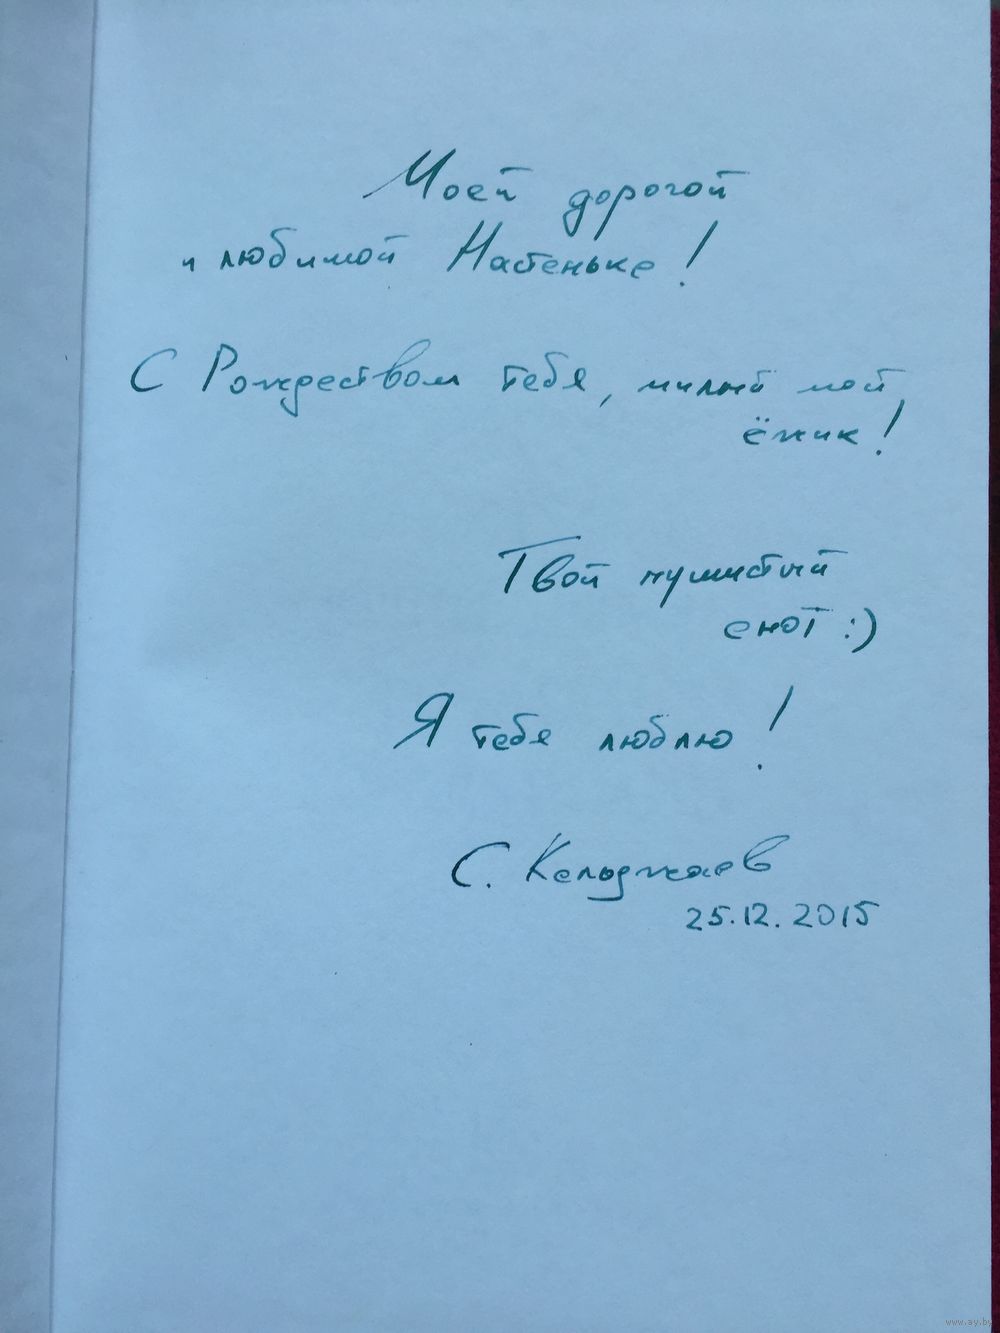 Моей дорогой
и любимой Настеньке!
С Рождеством тебя, милый мой
ёжик!
Твой пушистый
енот :)
Я тебя люблю!
С. Кельджаев
25.12.2015
www.ay.by